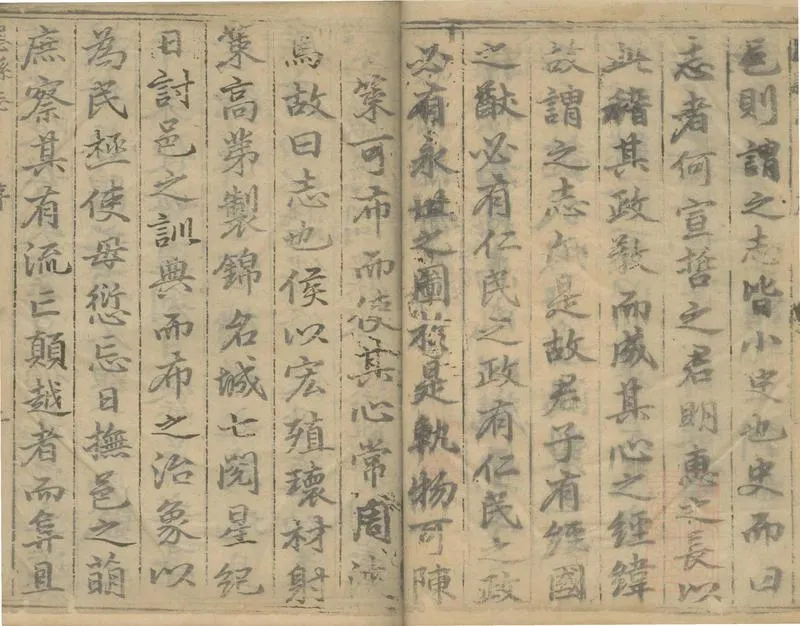 邑則謂之志皆小史也史而曰
志者何宣哲之君明惠之長以
此稽其政教而咸其心之經緯
故謂之志尔是故君子有經國
之猷必有仁民之政有仁民之政
必有永世之圖於是執物可陳
策可布而使其心常周流
焉故曰志也侯以宏殖瓌材射
策高第製錦名城七閱星紀
日討邑之訓典而布之治象以
為民極使毋愆忘日撫邑之萌
庶察其有流亡顛越者而弇且